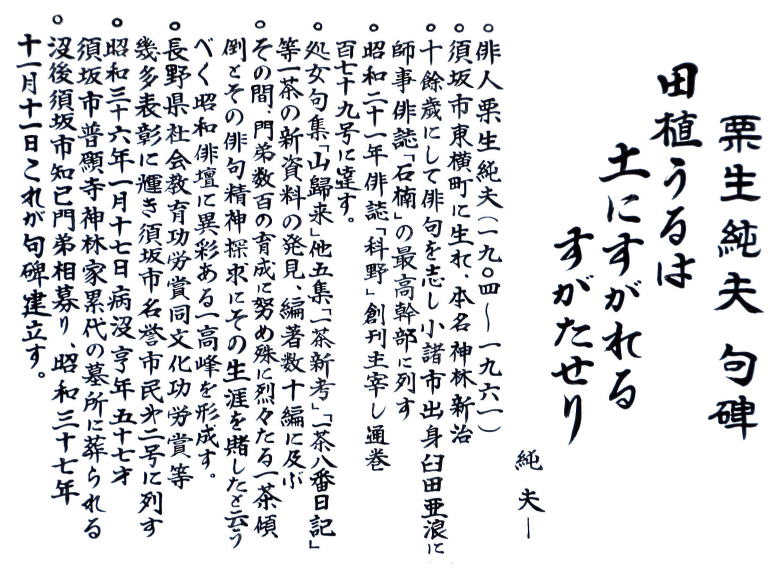 栗生純夫 句碑
田植うるは
土にすがれる
すがたせり
純夫ー
○俳人栗生純夫(一九〇四〜一九六一)
○須坂市東横町に生れ、本名神林新治
○十餘歳にして俳句を志し小諸市出身臼田亜浪に
師事俳誌「石楠」の最高幹部に列す
○昭和二十一年俳誌「科野」創刊主宰し通巻
百七十九号に達す。
○処女句集「山歸来」他五集「一茶新考」「一茶八番日記」
等一茶の新資料の発見、編著数十編に及ぶ
○その間、門弟数百の育成に努め殊に烈々たる一茶傾
倒とその俳句精神探求にその生涯を賭したと云う
べく昭和俳壇に異彩ある一高峰を形成す。
○長野県社会教育功労賞同文化功労賞等
幾多表彰に輝き須坂市名誉市民才二号に列す
○昭和三十六年一月十七日病没享年五十七才
須坂市普願寺神林家累代の墓所に葬られる
○没後須坂市知己門弟相募り、昭和三十七年
十一月十一日これが句碑建立す。